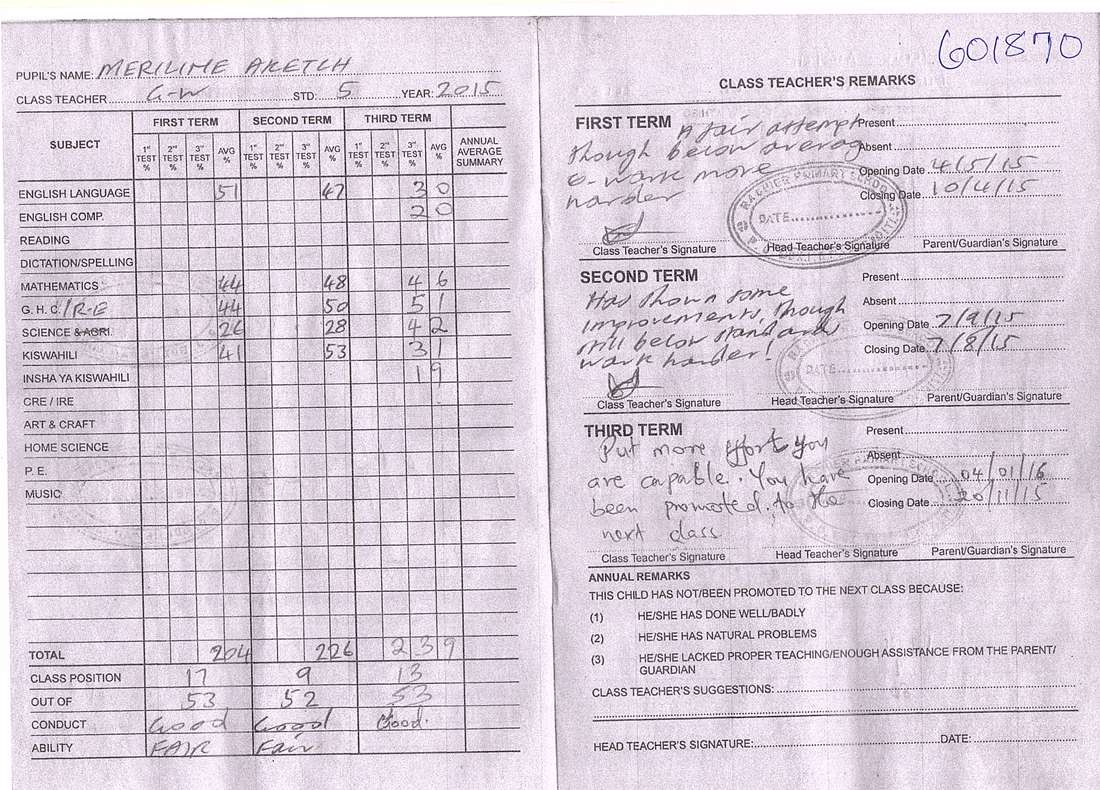 601870
PUPIL'S NAME: MERILINE AKETCH
CLASS TEACHER G-W STD: 5 YEAR: 2015
SUBJECT FIRST TERM SECOND TERM THIRD TERM ANNUAL AVERAGE SUMMARY
1ST TEST % 2ND TEST % 3RD TEST % AVG % 1ST TEST % 2ND TEST % 3RD TEST % AVG % 1ST TEST % 2ND TEST % 3RD TEST % AVG %
ENGLISH LANGUAGE 51 47 30
ENGLISH COMP. 20
READING
DICTATION/SPELLING
MATHEMATICS 44 48 46
G. H. C./R-E 44 50 51
SCIENCE & AGRI. 26 28 42
KISWAHILI 41 53 31
INSHA YA KISWAHILI 19
CRE / IRE
ART & CRAFT
HOME SCIENCE
P. E.
MUSIC
TOTAL 204 226 239
CLASS POSITION 17 9 13
OUT OF 53 52 53
CONDUCT Good Good Good.
ABILITY FAIR Fair
CLASS TEACHER'S REMARKS
FIRST TERM A fair attempt Present
though below average Absent
work more Opening Date 4/5/15
harder Closing Date 10/4/15
PRIMARY SCHOOL
DATE
Class Teacher's Signature Head Teacher's Signature Parent/Guardian's Signature
SECOND TERM Present
Has shown some Absent
improvements, though Opening Date 7/9/15
still below standard Closing Date 7/8/15
work harder!
DATE
Class Teacher's Signature Head Teacher's Signature Parent/Guardian's Signature
THIRD TERM Present
Put more effort you Absent
are capable. You have Opening Date 04/01/16
been promoted to the Closing Date 20/11/15
next class
Class Teacher's Signature Head Teacher's Signature Parent/Guardian's Signature
ANNUAL REMARKS
THIS CHILD HAS NOT/BEEN PROMOTED TO THE NEXT CLASS BECAUSE:
(1) HE/SHE HAS DONE WELL/BADLY
(2) HE/SHE HAS NATURAL PROBLEMS
(3) HE/SHE LACKED PROPER TEACHING/ENOUGH ASSISTANCE FROM THE PARENT/
GUARDIAN
CLASS TEACHER'S SUGGESTIONS:
HEAD TEACHER'S SIGNATURE: DATE: